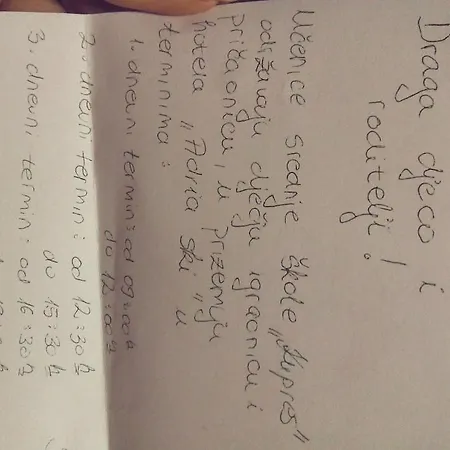 Draga djeco i
roditelji!
Učenice srednje škole „Kupres"
održavaju dječju igraonicu i
pričaonicu, u prizemju
hotela „Adria ski" u
terminima:
1. dnevni termin: od 09:00h
do 12:00h
2. dnevni termin: od 12:30h
do 15:30h
3. dnevni termin: od 16:30h